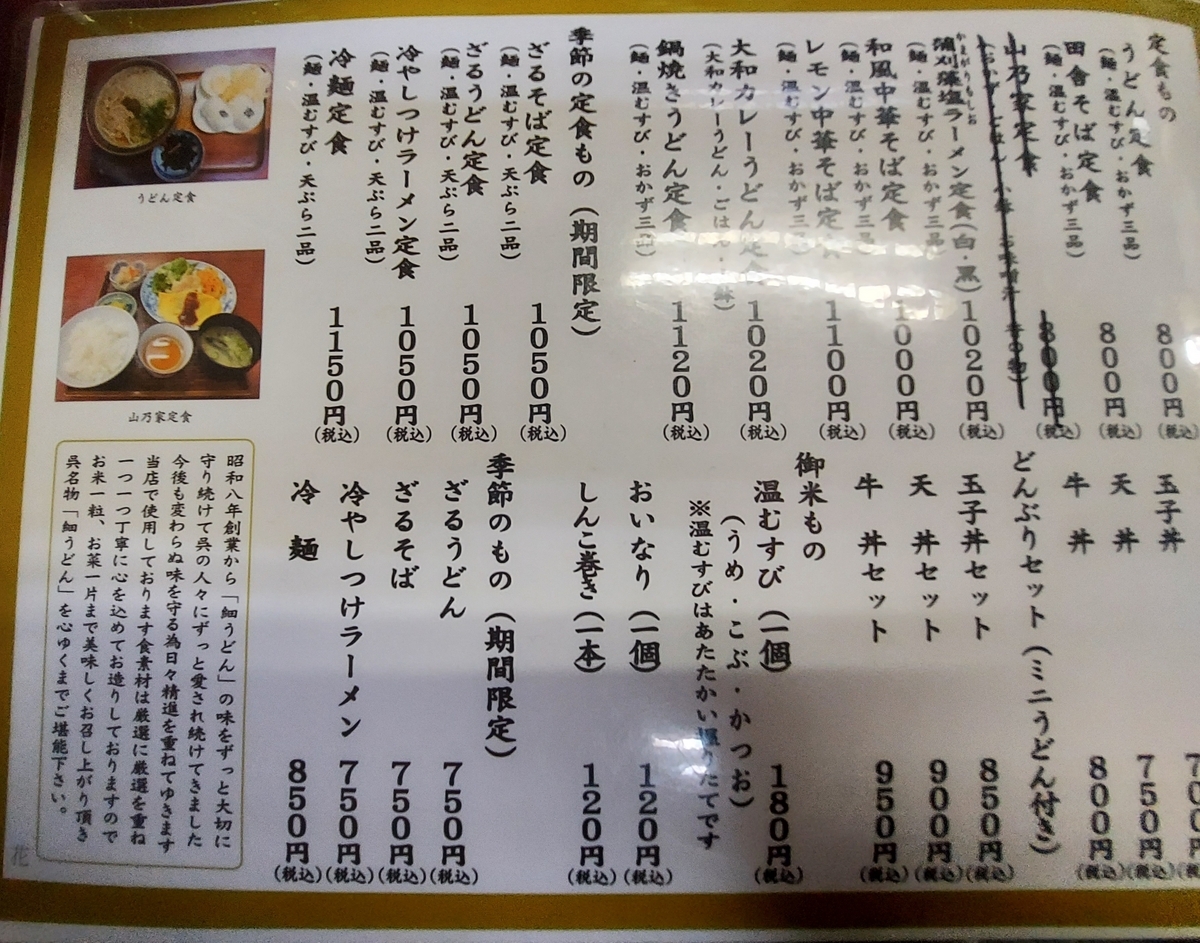 定食もの
うどん定食
(麺・温むすび・おかず三品)
800円
(税込)
田舎そば定食
(麺・温むすび・おかず三品)
800円
(税込)
山乃家定食
800円
(税込)
かまがりもしお
蒲刈藻塩ラーメン定食(白・黒)
(麺・温むすび・おかず三品)
1020円
(税込)
和風中華そば定食
(麺・温むすび・おかず三品)
1000円
(税込)
レモン中華そば定食
(麺・温むすび・おかず三品)
1100円
(税込)
大和カレーうどん定食
(大和カレーうどん・ごはん・
1020円
(税込)
鍋焼きうどん定食
(麺・温むすび・おかず三品)
1120円
(税込)
季節の定食もの(期間限定)
ざるそば定食
(麺・温むすび・天ぷら二品)
1050円
(税込)
ざるうどん定食
(麺・温むすび・天ぷら二品)
1050円
(税込)
冷やしつけラーメン定食
(麺・温むすび・天ぷら二品)
1050円
(税込)
冷麺定食
(麺・温むすび・天ぷら二品)
1150円
(税込)
うどん定食
山乃家定食
玉子丼
天丼
750円
(税込)
牛丼
800円
(税込)
どんぶりセット(ミニうどん付き)
玉子丼セット
850円
(税込)
天丼セット
900円
(税込)
牛丼セット
950円
(税込)
御米もの
温むすび(一個)
180円
(税込)
(うめ・こぶ・かつお)
※温むすびはあたたかい握りたてです
おいなり(一個)
120円
(税込)
しんこ巻き(一本)
120円
(税込)
季節のもの(期間限定)
ざるうどん
750円
(税込)
ざるそば
750円
(税込)
冷やしつけラーメン
750円
(税込)
冷麺
850円
(税込)
昭和八年創業から「細うどん」の味をずっと大切に
守り続けて呉の人々にずっと愛され続けてきました
今後も変わらぬ味を守る為日々精進を重ねてゆきます
当店で使用しております食素材は厳選に厳選を重ね
一つ一つ丁寧に心を込めてお造りしておりますので
お米一粒、お菜一片まで美味しくお召し上がり頂き
呉名物「細うどん」を心ゆくまでご堪能下さい。
花